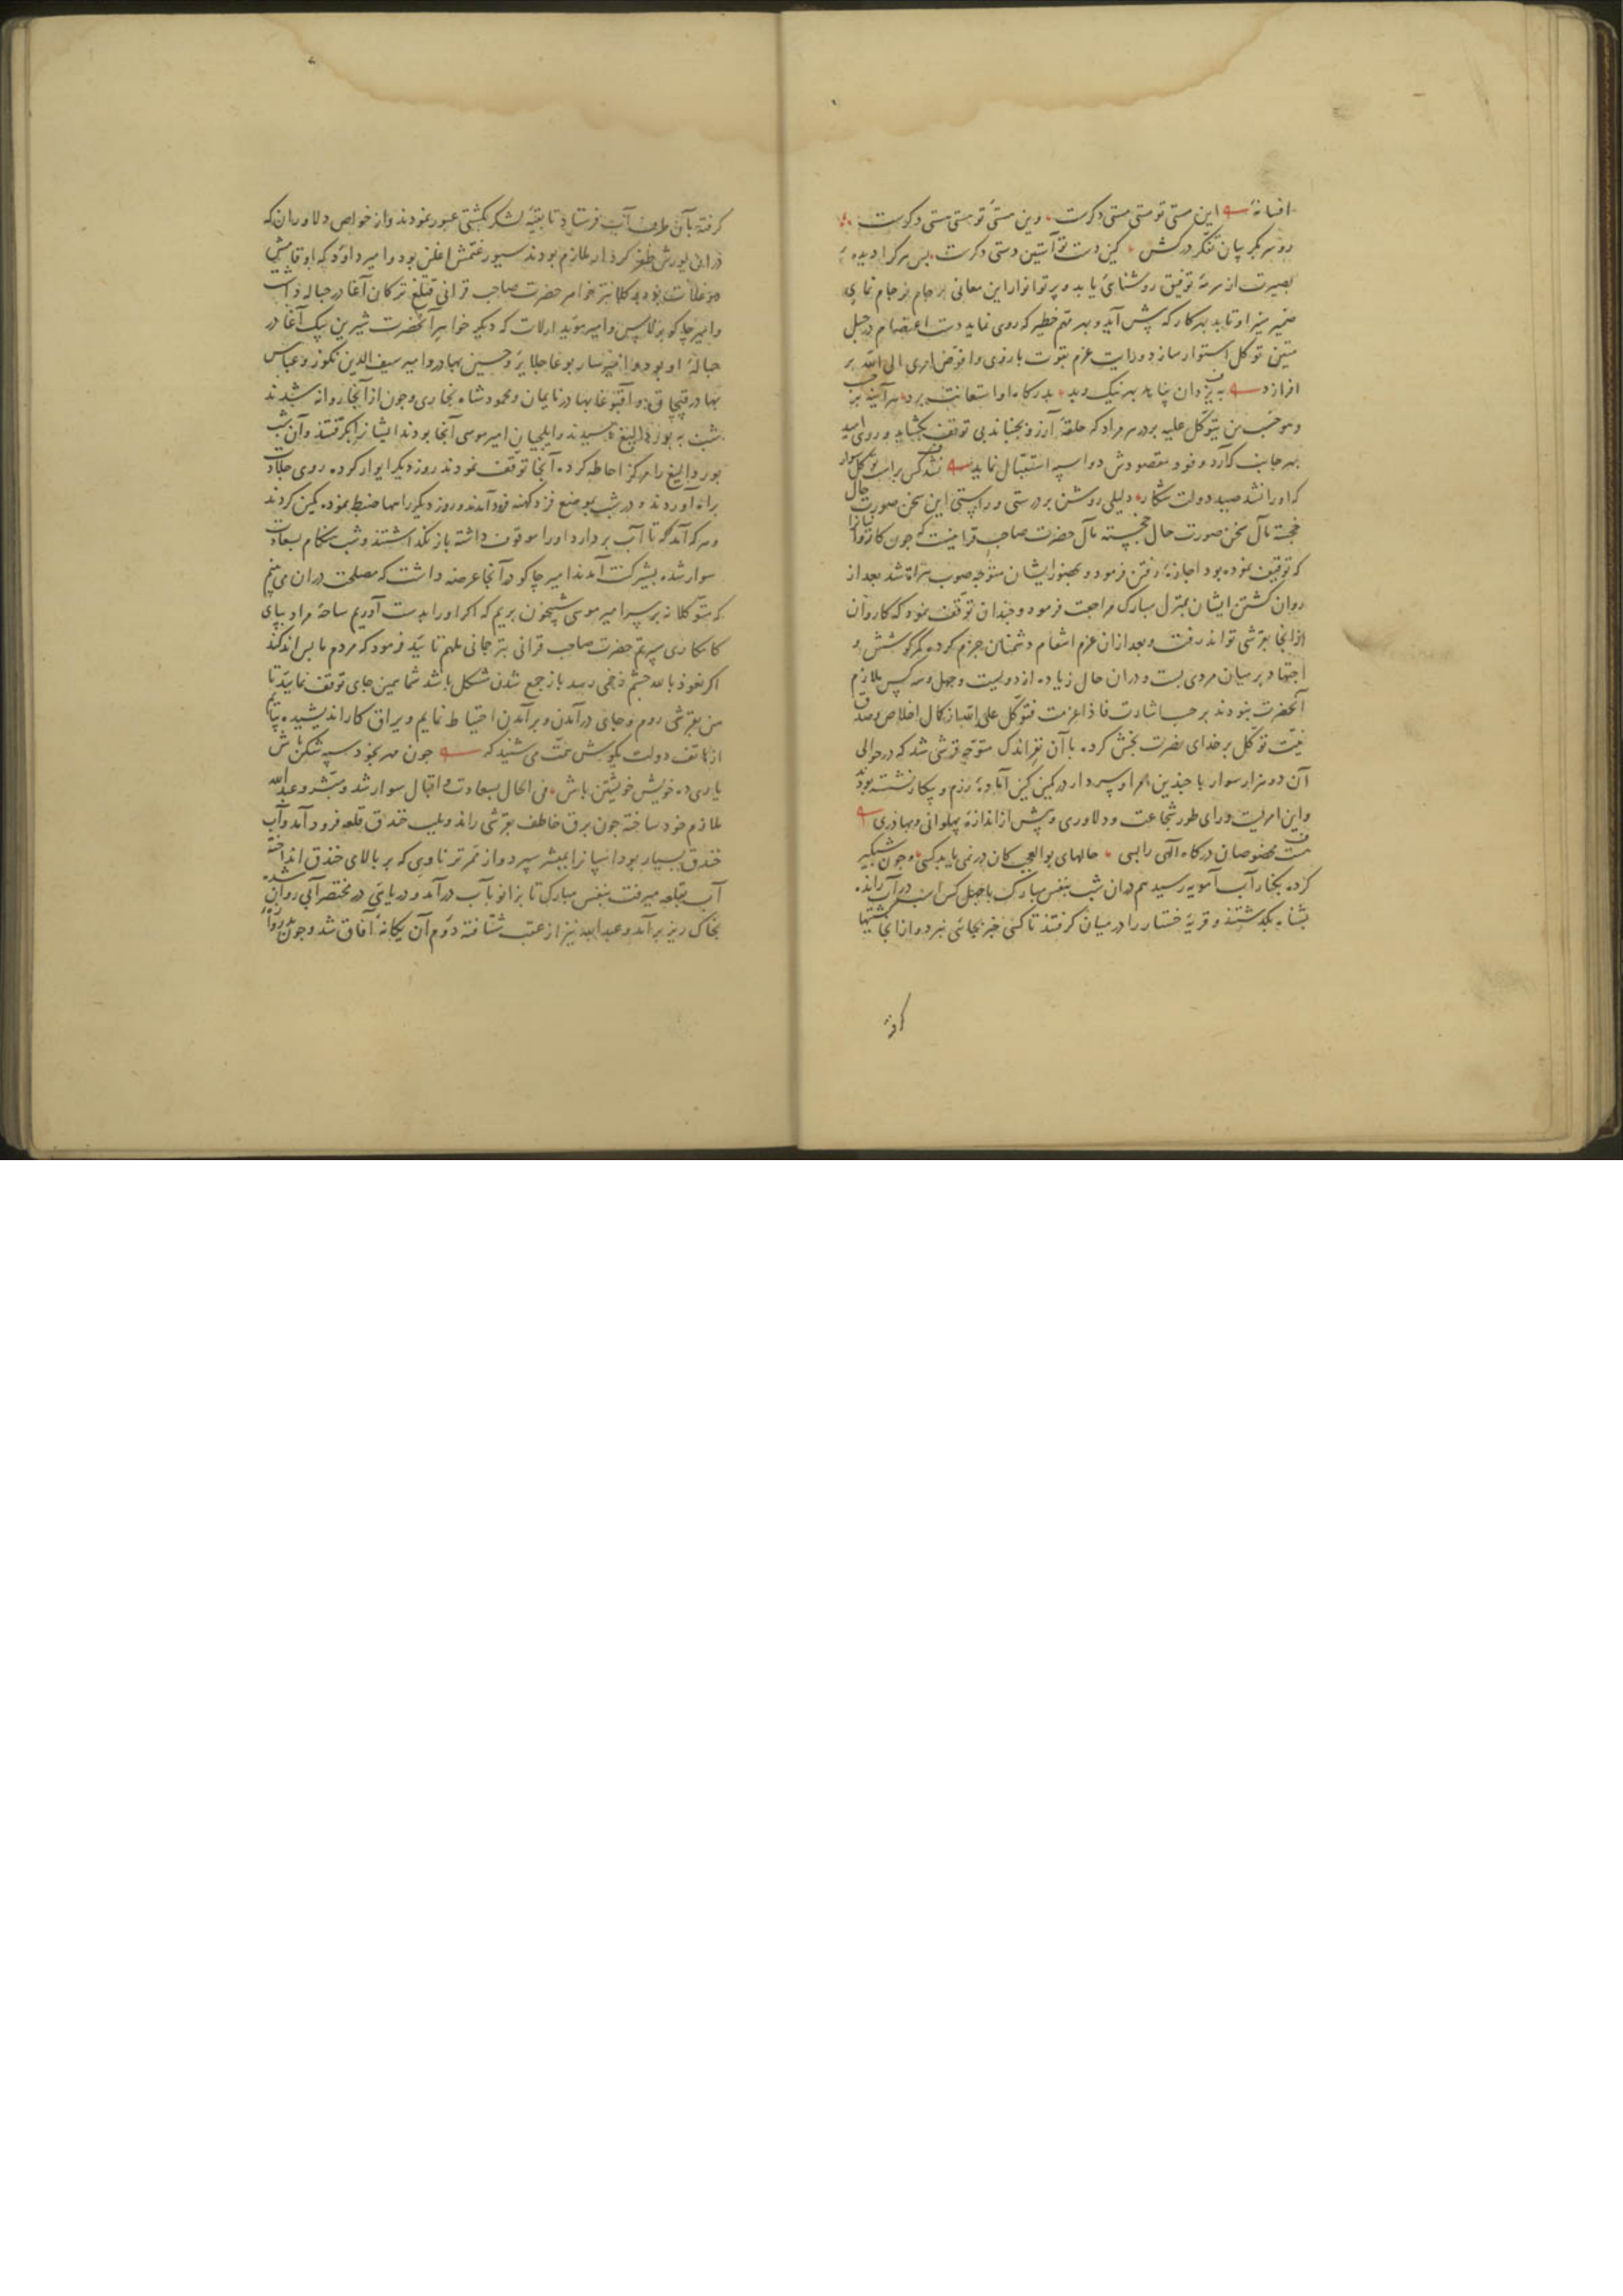 افسانهٔ این مستی تو مستی مستی دکرست وین هستی تو هستی هستی دکرست
رو سر بکریبان تفکر درکش کین دست تو آستین دستی دکرست پس هر کرا دیده
بصیرت از سرمهٔ توفیق روشنائی یابد و پرتو انوار این معانی بر جام نمای
ضمیر منیر او تابد بهر کار که پیش آید و بهر مهم خطیر که روی نماید دست اعتصام در حبل
متین توکل استوار سازد و رایت عزم بقوت بازوی وافوض امری الی الله بر
افرازد به یزدان پناهد بهر نیک و بد بدرکاه او استعانت برد هر آینه
و هو حسبه من یتوکل علیه بر در هر مراد که حلقهٔ آرزو بجنباند بی توقف بکشاید و روی امید
بهر جانب که آرد وفود مقصودش دو اسپه استقبال نماید نشد کس بر اسپ توکل سوار
که او را نشد صید دولت شکار دلیلی روشن بر درستی و راستی این سخن صورت حال
خجسته مآل حضرت صاحب قرانیست که چون کاروانرا
که توقیف نموده بود اجازهٔ رفتن فرمود و بحضور ایشان متوجه صوب هراة شد بعد از
روان کشتن ایشان بمنزل مبارک مراجعت فرمود و چندان توقف نمود که کاروان
از انجا بقرشی تواند رفت و بعد ازان عزم انتقام دشمنان جزم کرده کمر کوشش و
اجتهاد بر میان مردی بست و دران حال زیاده از دویست و چهل و سه کس ملازم
آنحضرت نبودند بر حسب اشارت فاذا عزمت فتوکل علی الله از کمال اخلاص و صدق
نیت توکل بر خدای نصرت بخش کرده با آن نفر اندک متوجه قرشی شد که در حوالی
آن دوازده هزار سوار با چندین امرا و سردار در کمین کین آمادهٔ رزم و پیکار نشسته بودند
و این امریست ورای طور شجاعت و دلاوری و پیش از اندازهٔ پهلوانی و بهادری
هست مخصوصان درکاه الهی را بسی حالهای بوالعجب کان در نمی یابد کسی و چون شبکیر
کرده بکنار آب آمویه رسید هم دران شب بنفس مبارک با چهل کس اسب در آب رانده
بشناه بکذشتند و قریهٔ خستار را در میان کرفتند تا کسی خبر بجائی نبرد و از انجا کشتیها
کرفته
کرفته بآن طرف آب فرستاد تا بقیه لشکر بکشتی عبور نمودند و از خواص دلاوران که
دران یورش ظفر کردار ملازم بودند سیورغتمش اغلن بود و امیر داود که
دوغلات بود و کلانتر خواهر حضرت صاحب قرانی قتلغ ترکان آغا در حباله داشت
و امیر چاکو برلاس و امیر موید ارلات که دیکر خواهر آنحضرت شیرین بیک آغا در
حبالهٔ او بود و امیر سار بوغا جلایر و حسین بهادر و امیر سیف الدین نکوز و عباس
بهادر قپچاق و آقبوغا بهادر نایمان و محمود شاه بخاری و چون از آنجا روانه شدند
شب به بوردالیغ رسیدند و ایلچیان امیر موسی آنجا بودند ایشانرا بکرفتند و آن شب
بوردالیغ را مرکز احاطه کرده آنجا توقف نمودند روز دیکر ایوار کرده روی جلادت
براه آوردند و در شب بموضع فرود آمدند و روز دیکر راهها ضبط نموده کمین کردند
و هر که آمد که تا آب بردارد او را موقوف داشته باز نکذاشتند و شب هنکام بسعادت
سوار شده بشیرکنت آمدند امیر چاکو در آنجا عرضه داشت که مصلحت دران می بینم
که متوکلانه بر سر امیر موسی شبیخون بریم که اکر او را بدست آوریم ساحهٔ مراد بپای
کامکاری سپریم حضرت صاحب قرانی بترجمانی ملهم تایید فرمود که مردم ما بس اندکند
اکر نعوذ بالله چشم زخمی رسد باز جمع شدن مشکل باشد شما همین جای توقف نمایید تا
من بقرشی روم و جای درآمدن و برآمدن احتیاط نمایم و یراق کار اندیشیده بیایم
از هاتف دولت بکوش همت می شنید که چون مهر بخود سپه شکن باش
یاری ده خویش خویشتن باش فی الحال بسعادت و اقبال سوار شد و مبشر و عبد الله
ملازم خود ساخته چون برق خاطف بقرشی راند و بلب خندق قلعه فرود آمد و آب
خندق بسیار بود اسپانرا بمبشر سپرد و از ممر ترناوی که بر بالای خندق انداخته
آب بقلعه میرفت بنفس مبارک تا بزانو بآب درآمد و دریایی در مختصر آبی روان شده
بخاک ریز برآمد و عبد الله نیز از عقب شتافته دوم آن یکانهٔ آفاق شد و چون بدروازه